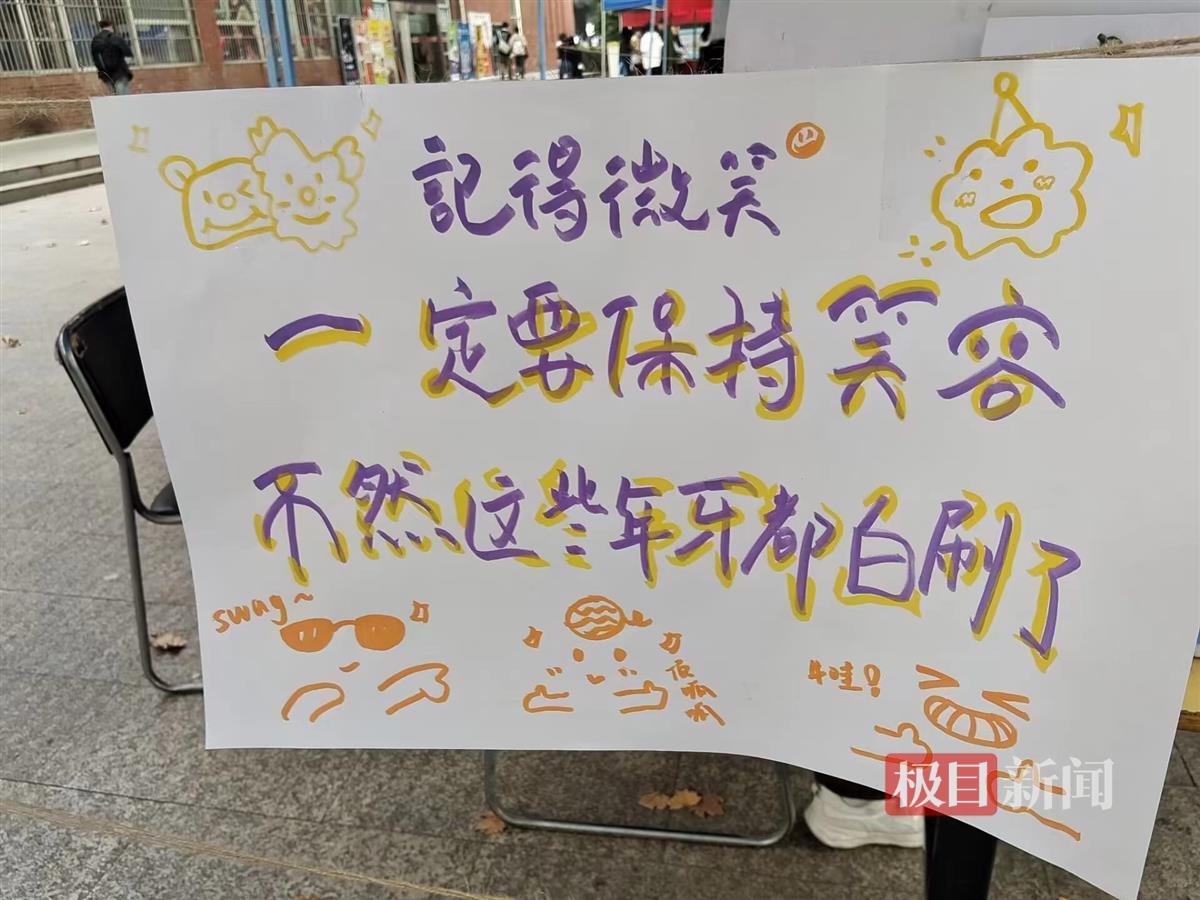 記得微笑
一定要保持笑容
不然这些年牙都白刷了
swag~
牛哇!
极目新闻